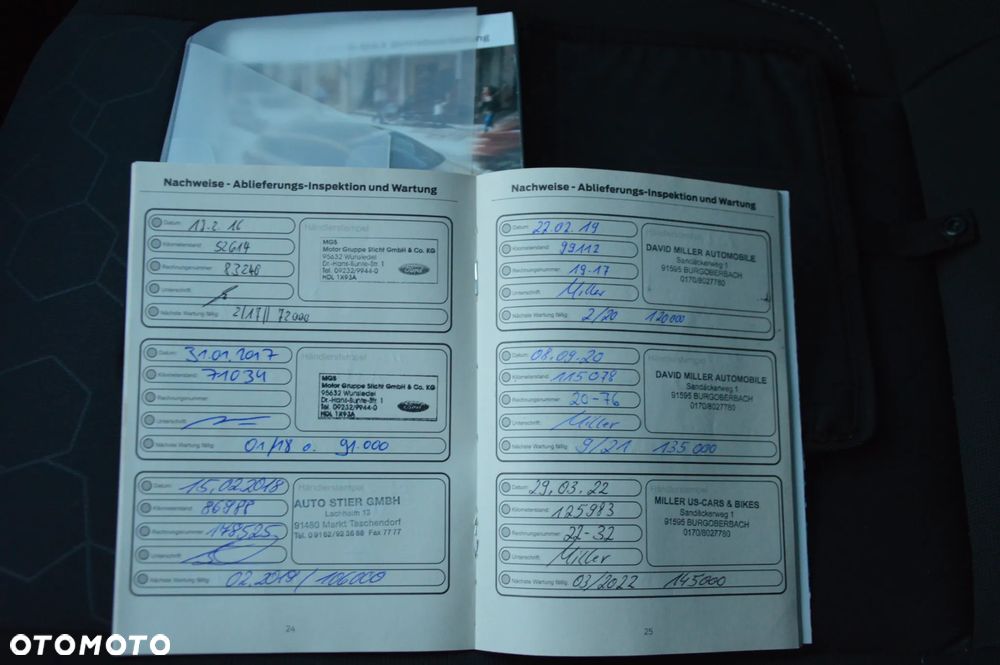 Nachweise - Ablieferungs-Inspektion und Wartung
Datum: 13.2.16
Kilometerstand: 52614
Rechnungsnummer: 83246
Unterschrift:
Nächste Wartung fällig: 2/17 // 72000
Händlerstempel
MGS
Motor Gruppe Sticht GmbH & Co. KG
95632 Wunsiedel
Dr.-Hans-Bunte-Str. 1
Tel. 09232/9944-0
HDL 1X93A
Ford
Datum: 31.01.2017
Kilometerstand: 71034
Rechnungsnummer:
Unterschrift:
Nächste Wartung fällig: 01/18 o. 91.000
Händlerstempel
MGS
Motor Gruppe Sticht GmbH & Co. KG
95632 Wunsiedel
Dr.-Hans-Bunte-Str. 1
Tel. 09232/9944-0
HDL 1X93A
Ford
Datum: 15.02.2018
Kilometerstand: 86988
Rechnungsnummer: 148525
Unterschrift:
Nächste Wartung fällig: 02.2019 / 106000
Händlerstempel
AUTO STIER GMBH
91480 Markt Taschendorf
24
Nachweise - Ablieferungs-Inspektion und Wartung
Datum: 22.02.19
Kilometerstand: 99112
Rechnungsnummer: 19-17
Unterschrift: Miller
Nächste Wartung fällig: 2/20 120000
Händlerstempel
DAVID MILLER AUTOMOBILE
Sandäckerweg 1
91595 BURGOBERBACH
0170/8027780
Datum: 08.09.20
Kilometerstand: 115078
Rechnungsnummer: 20-76
Unterschrift: Miller
Nächste Wartung fällig: 9/21 135000
Händlerstempel
DAVID MILLER AUTOMOBILE
Sandäckerweg 1
91595 BURGOBERBACH
0170/8027780
Datum: 29.03.22
Kilometerstand: 125983
Rechnungsnummer: 22-32
Unterschrift: Miller
Nächste Wartung fällig: 03/2022 145000
Händlerstempel
MILLER US-CARS & BIKES
Sandäckerweg 1
91595 BURGOBERBACH
0170/8027780
25
OTOMOTO